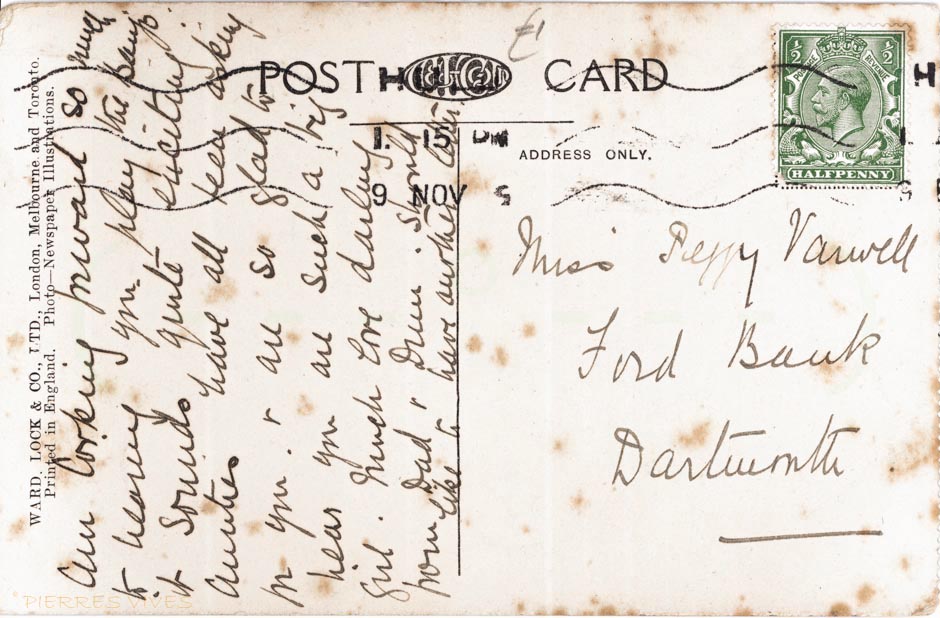 POST CARD
£1
H
1. 15 PM
9 NOV 5
H
1
½ ½
POSTAGE REVENUE
HALFPENNY
ADDRESS ONLY.
Miss Peggy Varwell
Ford Bank
Dartmouth
WARD, LOCK & CO., LTD., London, Melbourne and Toronto.
Printed in England. Photo—Newspaper Illustrations.
Am looking forward so much
to hearing you play the banjo.
it sounds quite exciting.
Aunties have all been asking
for you & are so glad to
hear you are such a big
girl. Much love darling
from Dad & Drum. Should
like to have another letter
PIERRES VIVES